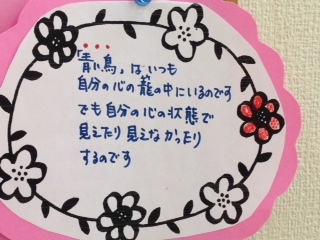 「青い鳥」はいつも
自分の心の籠の中にいるのです
でも自分の心の状態で
見えたり見えなかったり
するのです